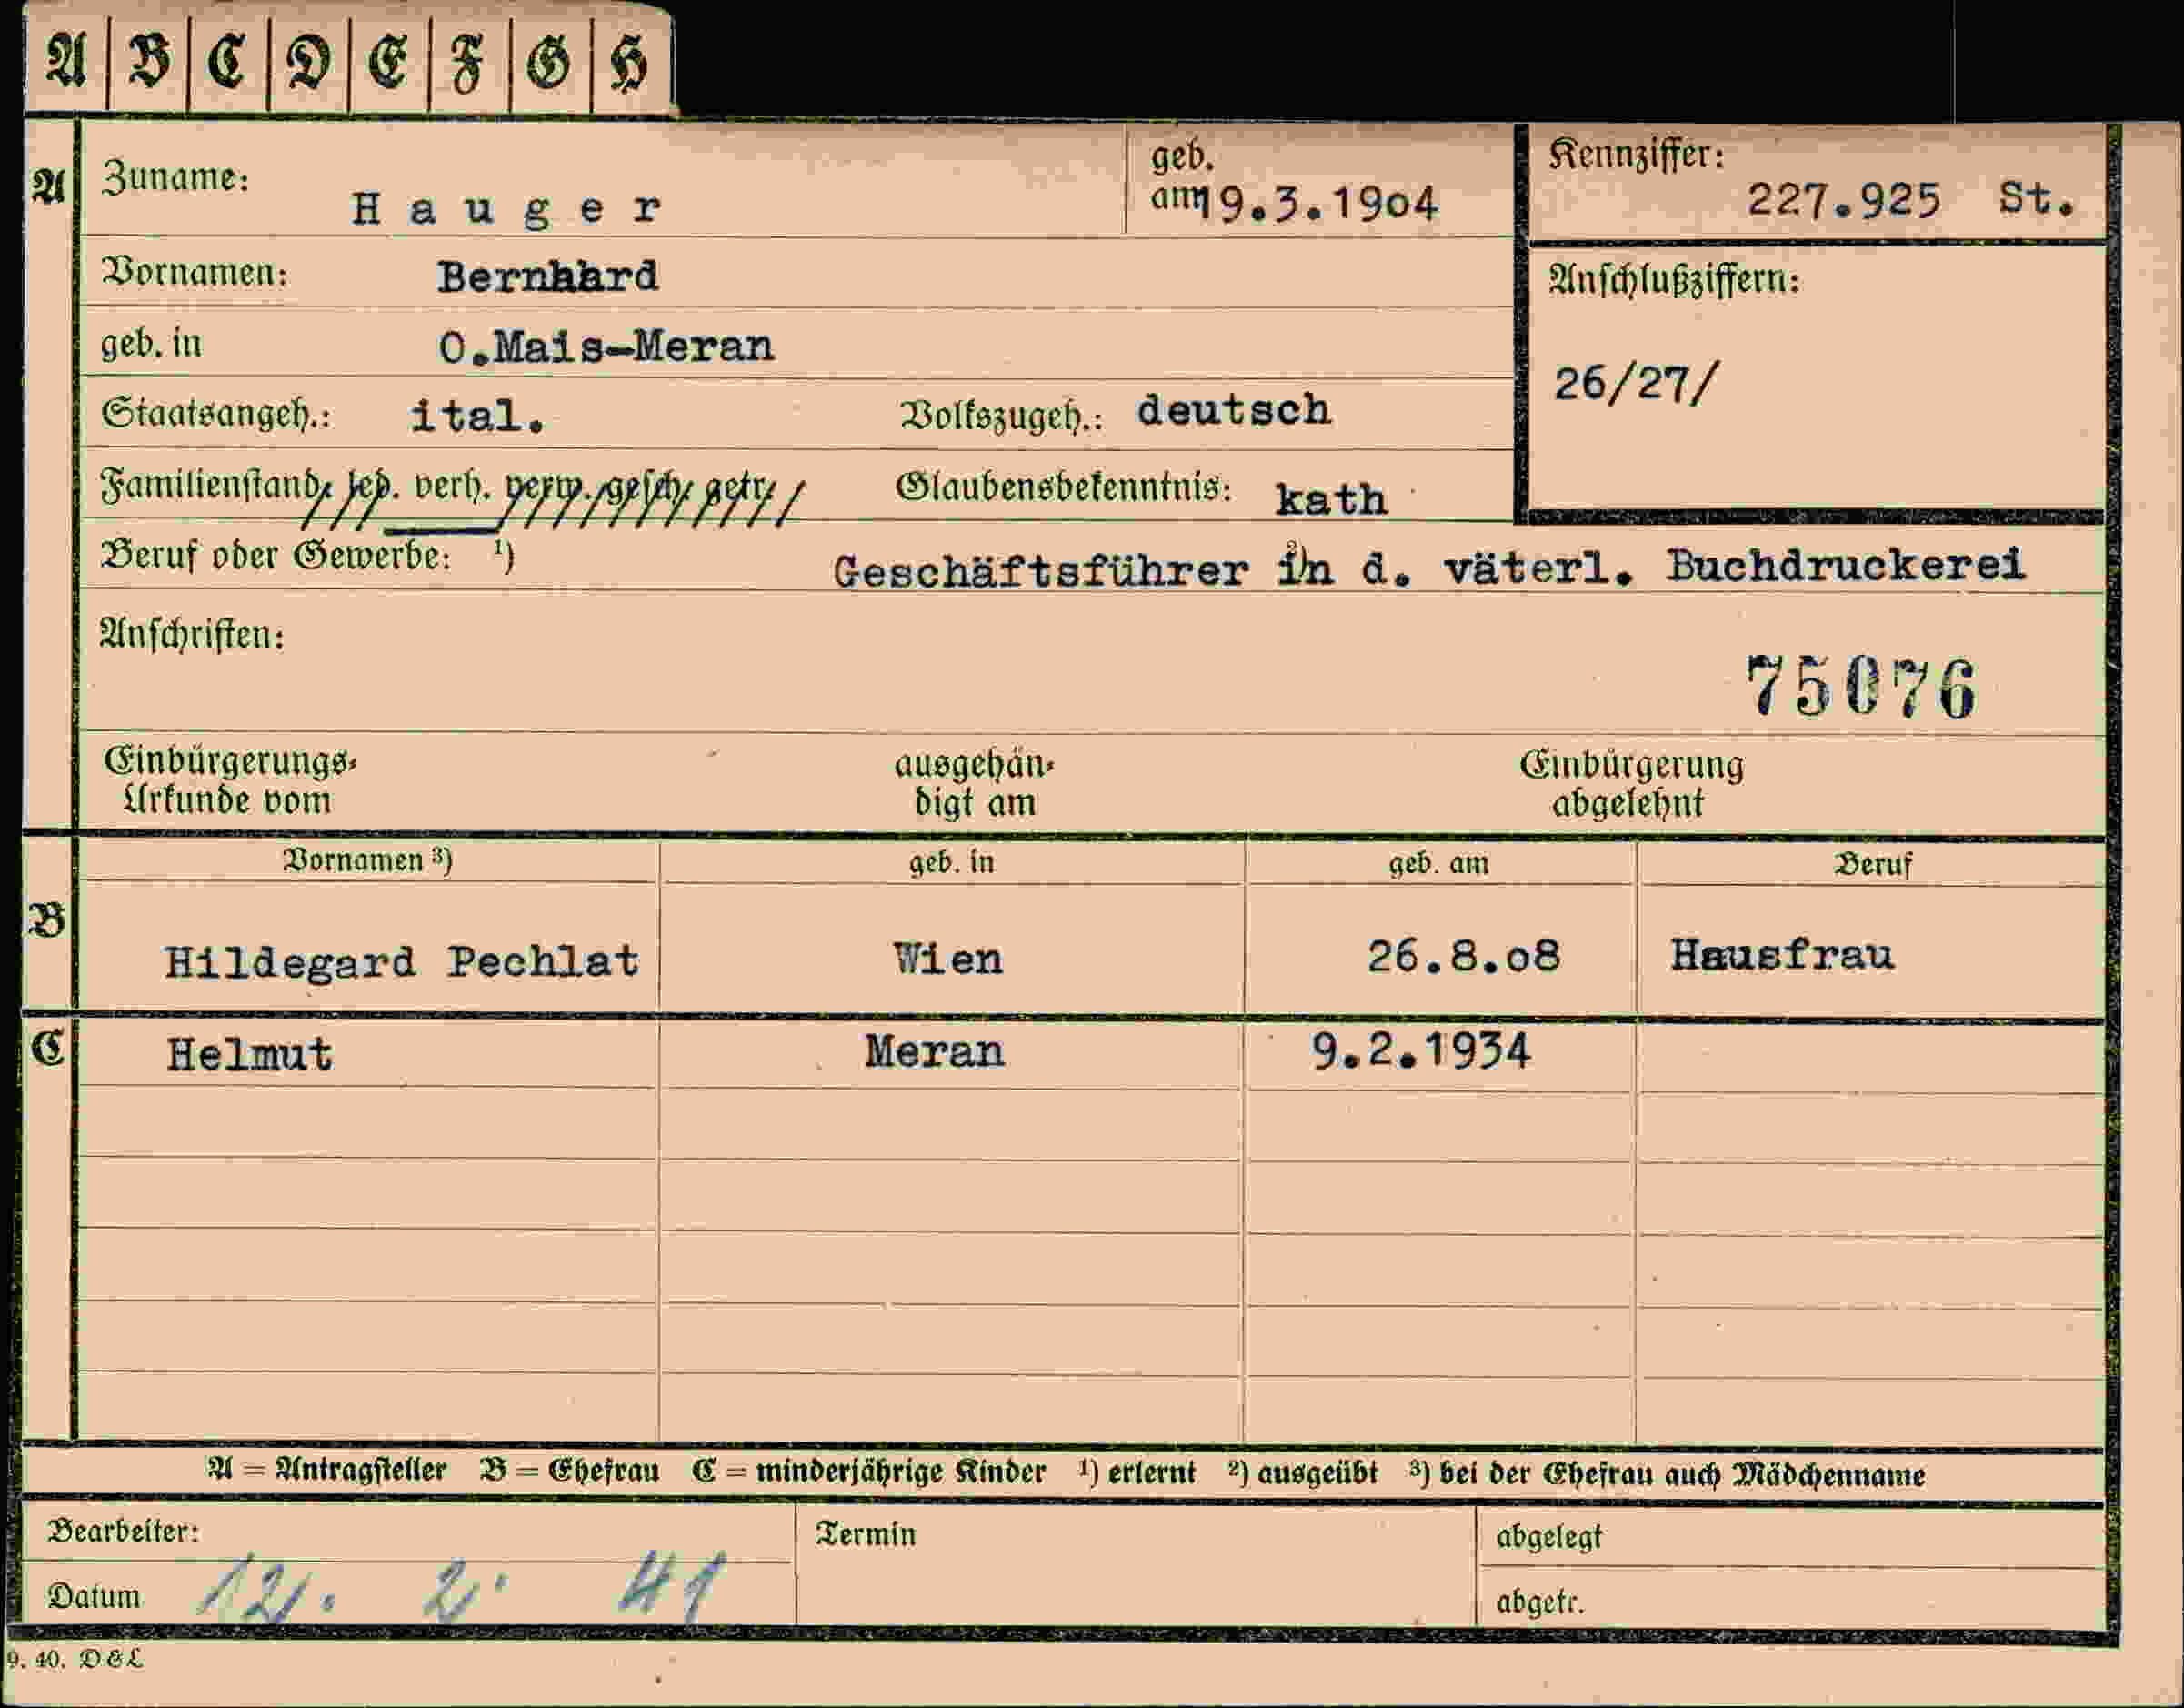 A B C D E F G H
A
Zuname: Hauger
geb. am 19.3.1904
Kennziffer: 227.925 St.
Vornamen: Bernhard
Anschlußziffern:
geb. in O.Mais-Meran
26/27/
Staatsangeh.: ital. Volkszugeh.: deutsch
Familienstand: led. verh. verw. gesch. getr. Glaubensbekenntnis: kath
Beruf oder Gewerbe: ¹) ²) Geschäftsführer in d. väterl. Buchdruckerei
Anschriften:
75076
Einbürgerungs-Urkunde vom
ausgehändigt am
Einbürgerung abgelehnt
B
Vornamen ³) geb. in geb. am Beruf
Hildegard Pechlat Wien 26.8.08 Hausfrau
C
Helmut Meran 9.2.1934
A = Antragsteller B = Ehefrau C = minderjährige Kinder ¹) erlernt ²) ausgeübt ³) bei der Ehefrau auch Mädchenname
Bearbeiter: Termin abgelegt
Datum 12. 2. 41 abgetr.
9. 40. D & L